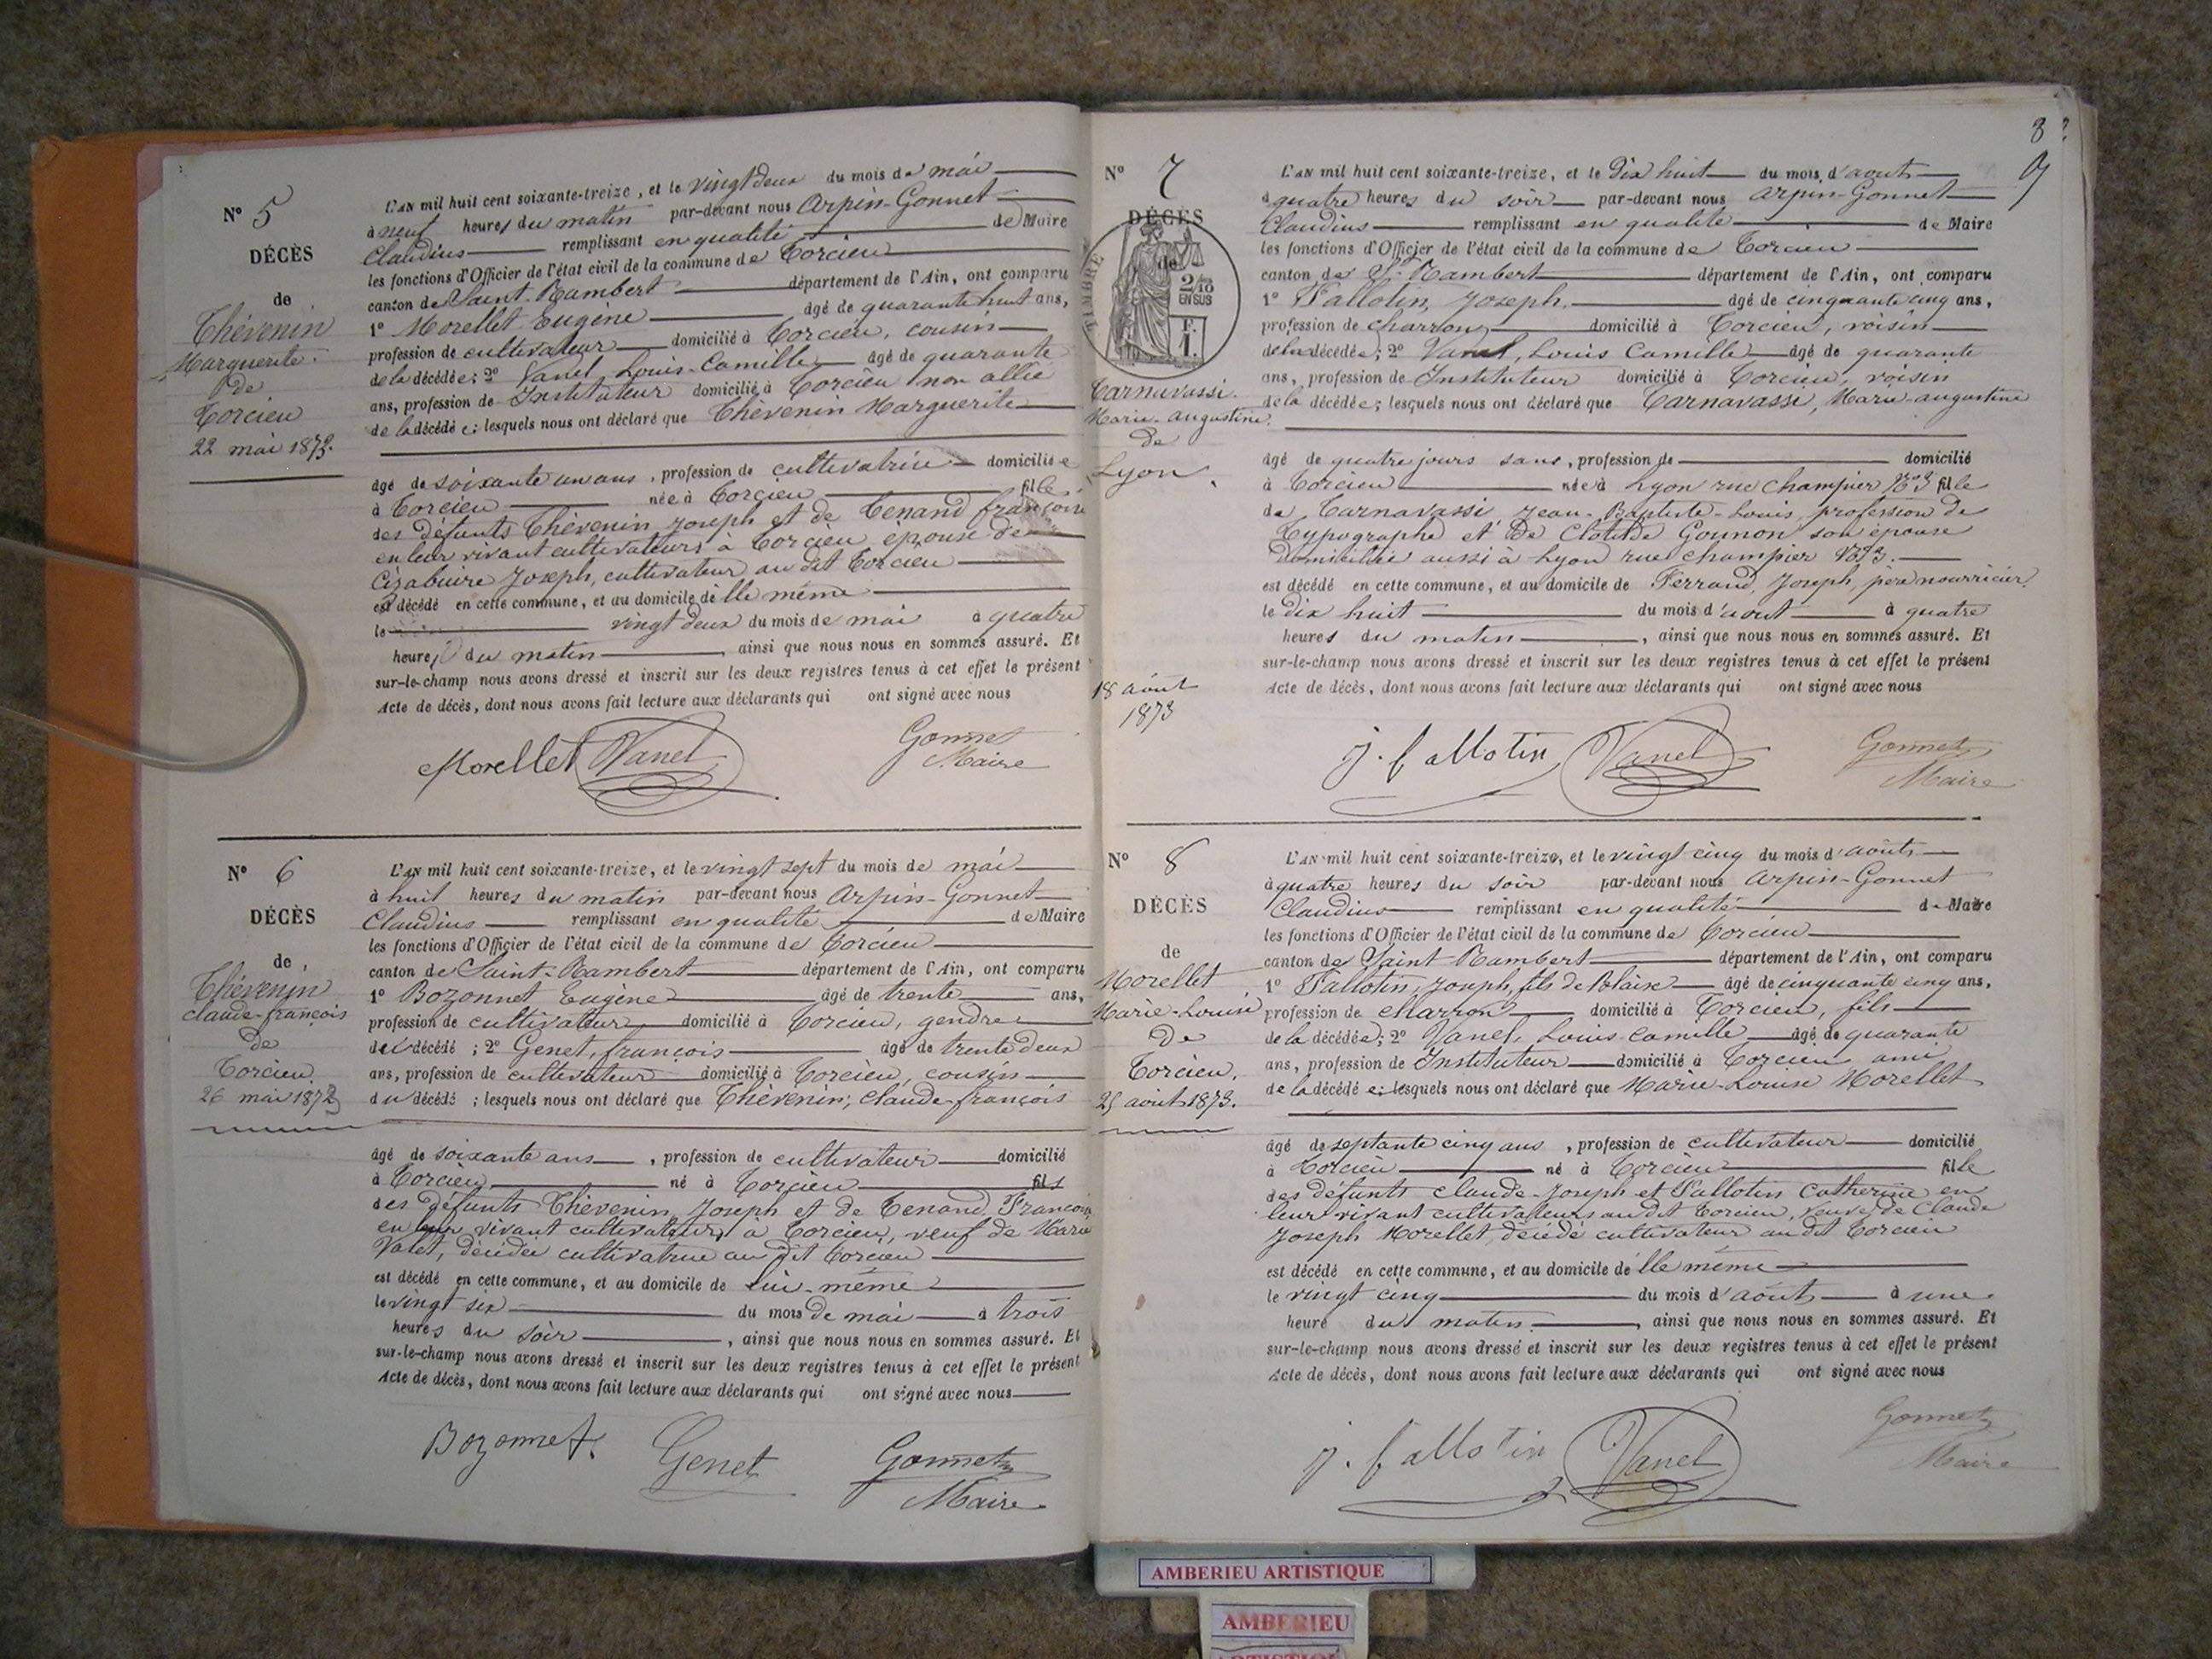 N° 5
DÉCÈS
de
Thévenin
Marguerite
de
Torcieu
22 mai 1873.
L'AN mil huit cent soixante-treize, et le vingt deux du mois de mai
à neuf heures du matin par-devant nous Arpin-Gonnet
Claudius remplissant en qualité de Maire
les fonctions d'Officier de l'état civil de la commune de Torcieu
canton de Saint-Rambert département de l'Ain, ont comparu
1° Morellet Eugène âgé de quarante huit ans,
profession de cultivateur domicilié à Torcieu, cousin
de la décédée; 2° Vanel Louis-Camille âgé de quarante
ans, profession de Instituteur domicilié à Torcieu non allié
de la décédée; lesquels nous ont déclaré que Thévenin Marguerite
âgé de soixante un ans, profession de cultivatrice domiciliée
à Torcieu née à Torcieu fille
des défunts Thévenin Joseph et de Tenand françoise
en leur vivant cultivateurs à Torcieu, épouse de
Joseph, cultivateur au dit Torcieu
est décédé en cette commune, et au domicile de lle même
le vingt deux du mois de mai à quatre
heures du matin, ainsi que nous nous en sommes assuré. Et
sur-le-champ nous avons dressé et inscrit sur les deux registres tenus à cet effet le présent
Acte de décès, dont nous avons fait lecture aux déclarants qui ont signé avec nous
Morellet Vanel Gonnet
Maire
N° 6
DÉCÈS
de
Thévenin
Claude-françois
de
Torcieu
26 mai 1873
L'AN mil huit cent soixante-treize, et le vingt sept du mois de mai
à huit heures du matin par-devant nous Arpin-Gonnet
Claudius remplissant en qualité de Maire
les fonctions d'Officier de l'état civil de la commune de Torcieu
canton de Saint-Rambert département de l'Ain, ont comparu
1° Bozonnet Eugène âgé de trente ans,
profession de cultivateur domicilié à Torcieu, gendre
du décédé; 2° Genet, françois âgé de trente deux
ans, profession de cultivateur domicilié à Torcieu, cousin
du décédé; lesquels nous ont déclaré que Thévenin, Claude-françois
âgé de soixante ans, profession de cultivateur domicilié
à Torcieu né à Torcieu fils
des défunts Thévenin Joseph et de Tenand, Françoise
en leur vivant cultivateurs à Torcieu, veuf de Marie
Valet, décédée cultivatrice au dit Torcieu
est décédé en cette commune, et au domicile de lui-même
le vingt six du mois de mai à trois
heures du soir, ainsi que nous nous en sommes assuré. Et
sur-le-champ nous avons dressé et inscrit sur les deux registres tenus à cet effet le présent
Acte de décès, dont nous avons fait lecture aux déclarants qui ont signé avec nous
Bozonnet. Genet Gonnet
Maire
8
9
N° 7
DÉCÈS
de
TIMBRE
2/10
EN SUS
F.
1.
Tarnavassi.
Marie-augustine.
de
Lyon.
18 août
1873
L'AN mil huit cent soixante-treize, et le Dix huit du mois d'aout
à quatre heures du soir par-devant nous Arpin-Gonnet
Claudius remplissant en qualité de Maire
les fonctions d'Officier de l'état civil de la commune de Torcieu
canton de St Rambert département de l'Ain, ont comparu
1° Fallotin, Joseph. âgé de cinquante cinq ans,
profession de charron domicilié à Torcieu, voisin
de la décédée; 2° Vanel, Louis Camille âgé de quarante
ans, profession de Instituteur domicilié à Torcieu, voisin
de la décédée; lesquels nous ont déclaré que Tarnavassi, Marie-augustine
âgé de quatre jours sans, profession de domicilié
à Torcieu née à Lyon rue champier N° 3 fille
de Tarnavassi Jean-Baptiste-Louis, profession de
Typographe et de Clotilde Gounon son épouse
domiciliée aussi à Lyon rue champier N° 3.
est décédé en cette commune, et au domicile de Ferrand, Joseph, père nourricier.
le dix huit du mois d'aout à quatre
heures du matin, ainsi que nous nous en sommes assuré. Et
sur-le-champ nous avons dressé et inscrit sur les deux registres tenus à cet effet le présent
Acte de décès, dont nous avons fait lecture aux déclarants qui ont signé avec nous
j. fallotin Vanel Gonnet
Maire
N° 8
DÉCÈS
de
Morellet
Marie-Louise
De
Torcieu.
25 août 1873.
L'AN mil huit cent soixante-treize, et le vingt cinq du mois d'août
à quatre heures du soir par-devant nous Arpin-Gonnet
Claudius remplissant en qualité de Maire
les fonctions d'Officier de l'état civil de la commune de Torcieu
canton de Saint Rambert département de l'Ain, ont comparu
1° Fallotin, Joseph, fils de Blaise âgé de cinquante cinq ans,
profession de charron domicilié à Torcieu, fils
de la décédée; 2° Vanel, Louis Camille âgé de quarante
ans, profession de Instituteur domicilié à Torcieu ami
de la décédée; lesquels nous ont déclaré que Marie-Louise Morellet
âgé de septante cinq ans, profession de cultivateur domicilié
à Torcieu né à Torcieu fille
des défunts Claude-Joseph et Fallotin Catherine en
leur vivant cultivateurs au dit Torcieu, veuve de Claude
Joseph Morellet, décédé cultivateur au dit Torcieu
est décédé en cette commune, et au domicile de lle même
le vingt cinq du mois d'août à une
heure du matin, ainsi que nous nous en sommes assuré. Et
sur-le-champ nous avons dressé et inscrit sur les deux registres tenus à cet effet le présent
Acte de décès, dont nous avons fait lecture aux déclarants qui ont signé avec nous
j. fallotin Vanel Gonnet
Maire
AMBERIEU ARTISTIQUE
AMBERIEU
ARTISTIQUE